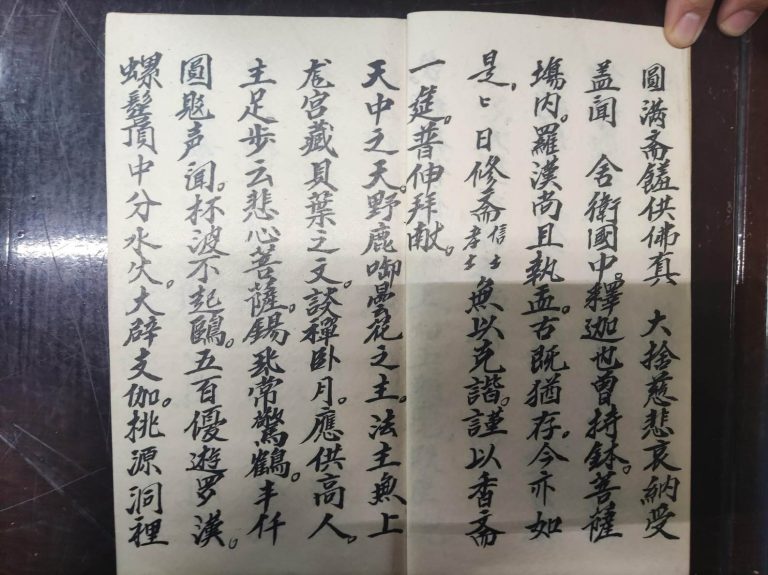 圓满斋饈供佛真　大捨慈悲哀納受
盖闻　舍衛國中。釋迦也曾持鉢。菩薩
塲内。羅漢尚且執盂。古既猶存。今亦如
是。〻日修斋信士孝士無以克諧。謹以香斋
一筵。普伸拜献。
天中之天。野鹿啣曇花之主。法主無上
龙宫藏貝葉之文。談禪卧月。應供高人。
主足步云悲心菩薩。錫飛常驚鶴。半仟
圓覍声闻。杯波不起鷗。五百優遊罗漢。
螺髻頂中分水火。大辟支伽。桃源洞裡